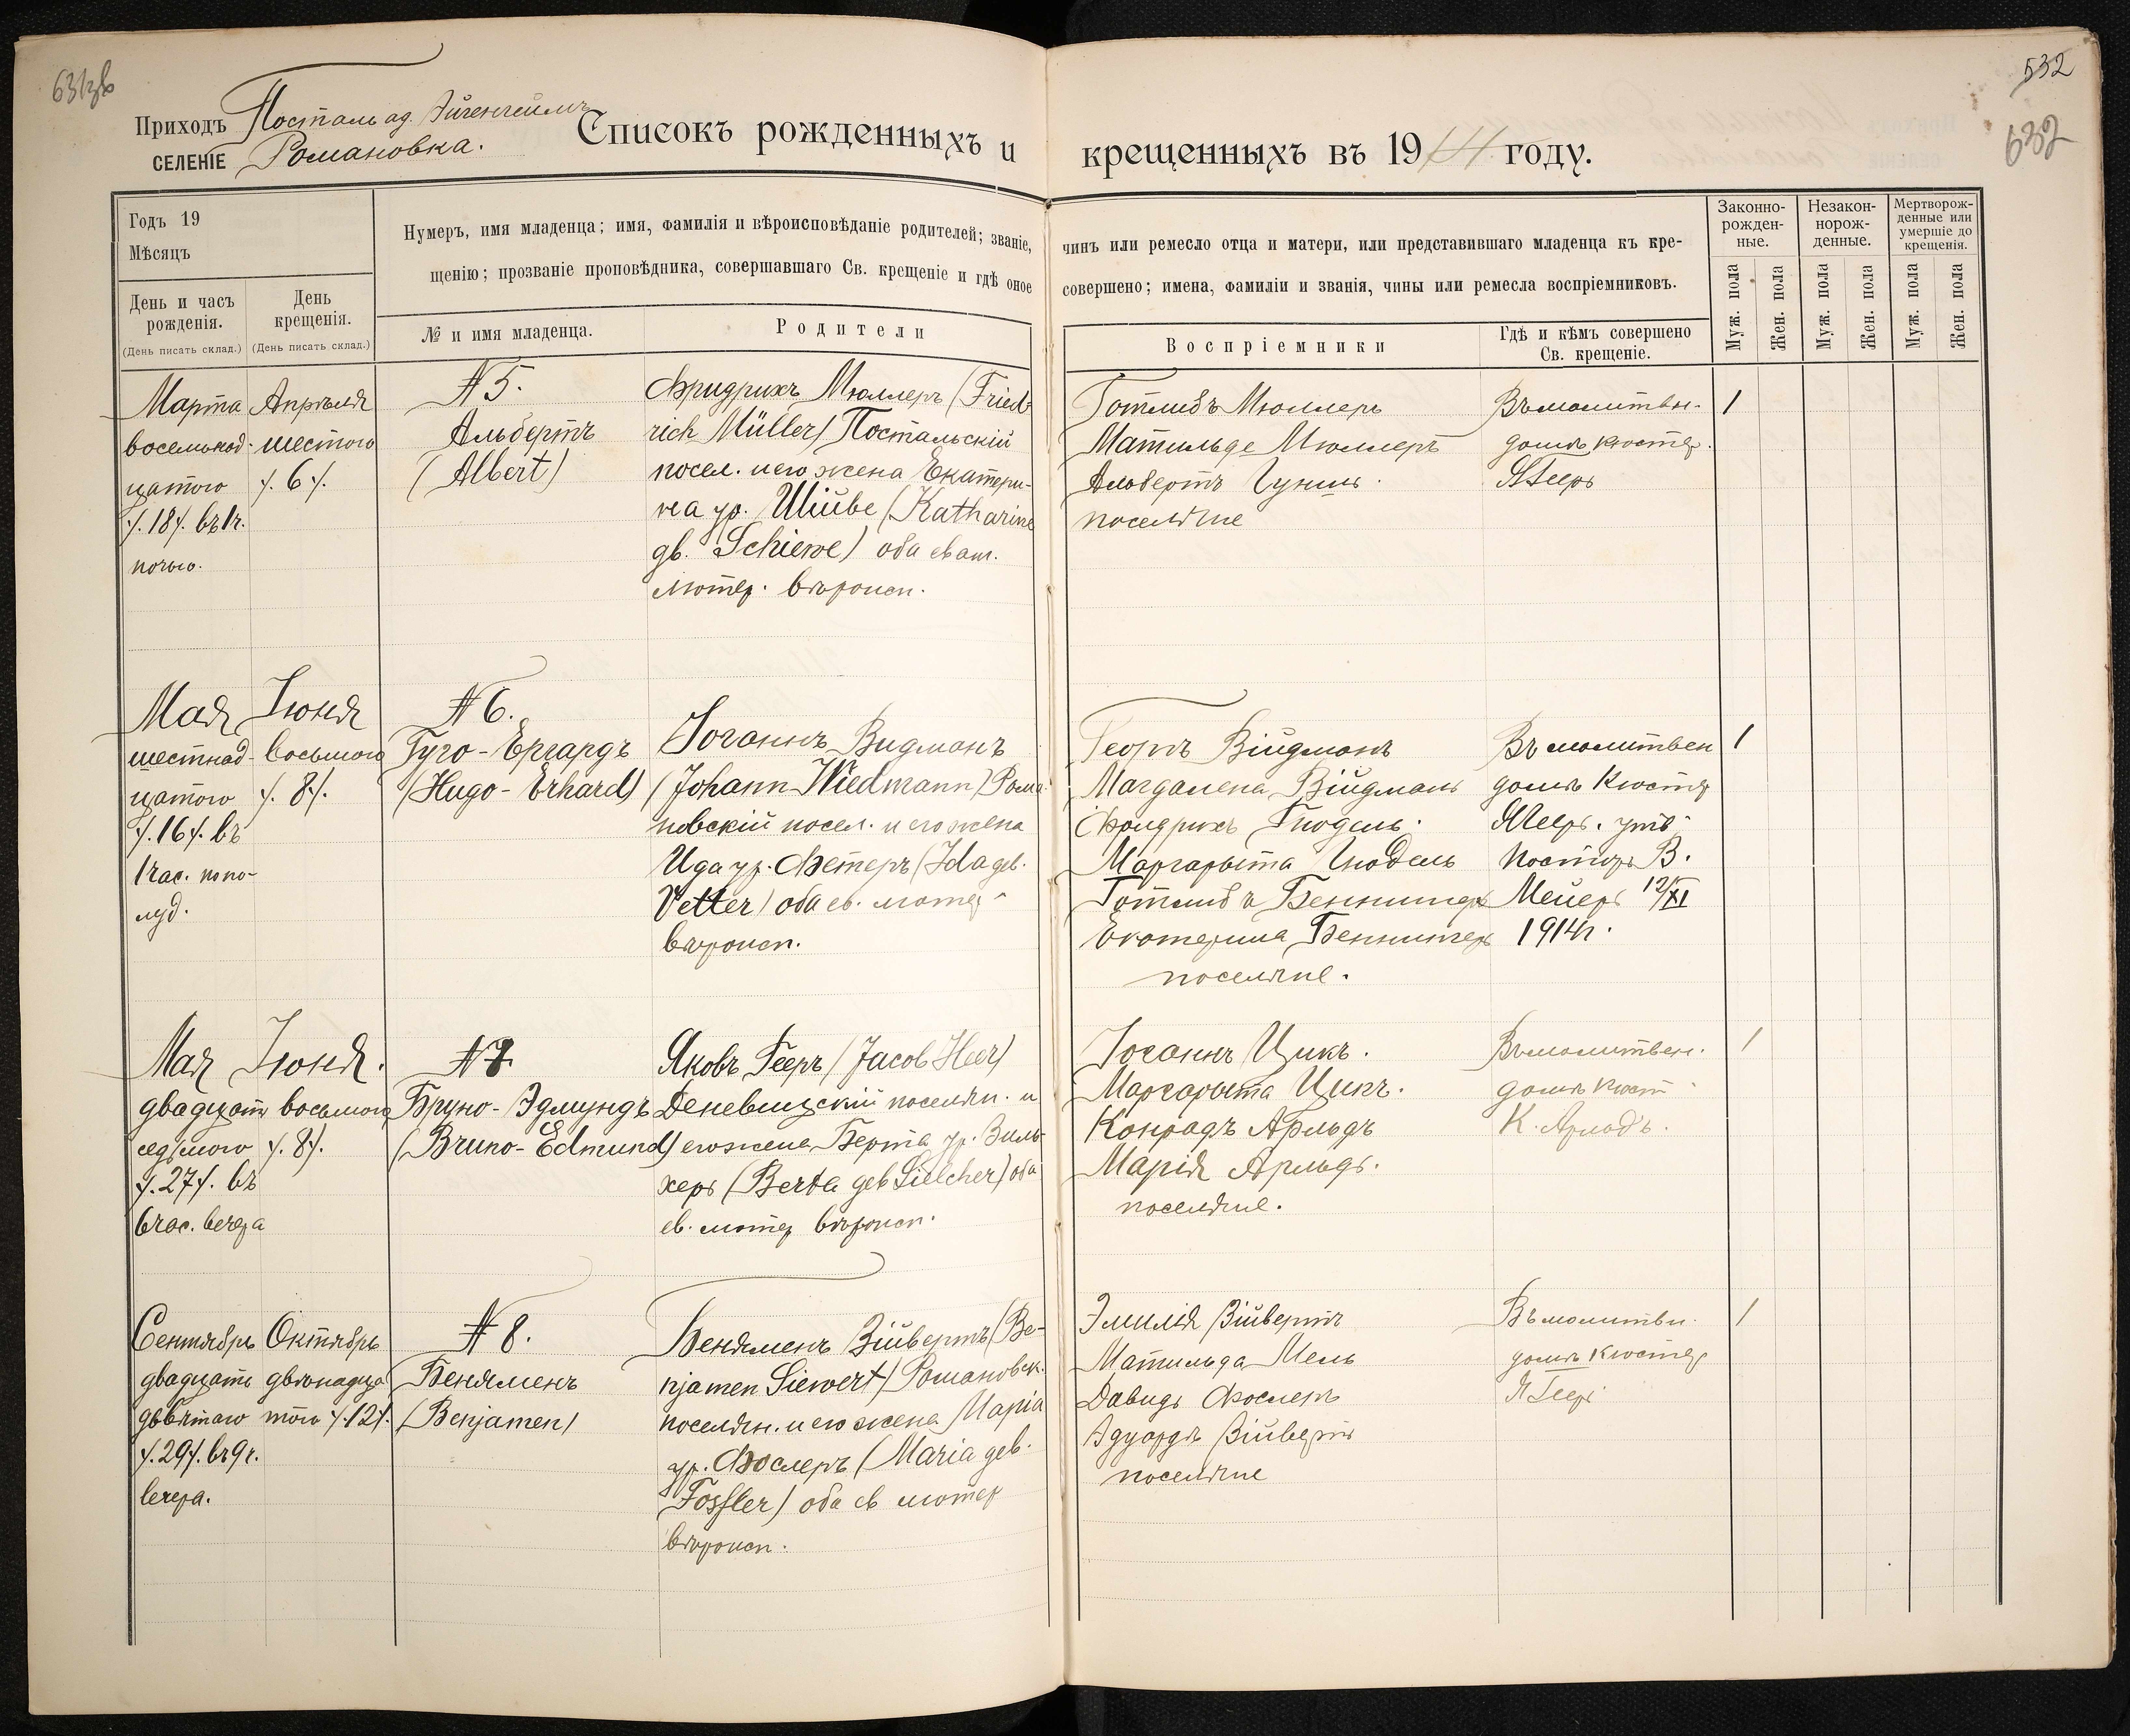 631об
532
632
Приходъ Посталь ад. Эйгенгеймъ
СЕЛЕНІЕ Романовка.
Списокъ рожденныхъ и крещенныхъ въ 1914 году.
Годъ 19
Мѣсяцъ
День и часъ рожденія.
(День писать склад.)
День крещенія.
(День писать склад.)
Нумеръ, имя младенца; имя, фамилія и вѣроисповѣданіе родителей; званіе, чинъ или ремесло отца и матери, или представившаго младенца къ кре-
щенію; прозваніе проповѣдника, совершавшаго Св. крещеніе и гдѣ оное совершено; имена, фамиліи и званія, чины или ремесла воспріемниковъ.
№ и имя младенца.
Родители
Воспріемники
Гдѣ и кѣмъ совершено
Св. крещеніе.
Законно-
рожден-
ные.
Незакон-
норож-
денные.
Мертворож-
денные или
умершіе до
крещенія.
Муж. пола
Жен. пола
Муж. пола
Жен. пола
Муж. пола
Жен. пола
Марта
восемьнад-
цатого
/. 18 /. въ 1 ч.
ночью.
Апрѣля
шестого
/. 6 /.
N 5.
Альбертъ
(Albert)
Фридрихъ Мюллеръ (Fried-
rich Müller) Постальскій
посел. и его жена Екатери-
на ур. Шиве (Katharine
gb. Schiewe) оба еван.
лютер. вѣроисп.
Готлибъ Мюллеръ
Матильде Мюллеръ
Альбертъ
поселяне
Въ молитвен.
домѣ кюстер.
Я Гееръ
1
Мая
шестнад-
цатого
/. 16 /. въ
1 час. попо-
луд.
Іюня
восьмого
/. 8 /.
N 6.
Гуго-Ергардъ
(Hugo-Erhard)
Іоганнъ Видманъ
(Johann Wiedmann) Рома-
новскій посел. и его жена
Ида ур. Фетеръ (Ida geb.
Vetter) оба ев. лютер
вѣроисп.
Георгъ Війдманъ
Магдалена Війдманъ
Фридрихъ Гнодель.
Маргарыта Гнодель
Готлибъ Беннингеръ
Екатерина Беннингеръ
поселяне.
Въ молитвен
домѣ Кюстер
Я Гееръ. утв.
Посторъ В.
Мейеръ 12/XI
1914 г.
1
Мая
двадцать
седьмого
/. 27 /. въ
6 час. вечера
Іюня.
восьмого
/. 8 /.
N 7.
Бруно-Эдмундъ
(Bruno-Edmund)
Яковъ Гееръ (Jacob Heer)
Деневицскій поселян. и
его жена Берта ур. Зиль-
херъ (Berta geb Sielcher) оба
ев. лютер вѣроисп.
Іоганнъ Цикъ.
Маргарыта Цикъ.
Конрадъ Арльдъ
Марія Арльдъ.
поселяне.
Въ молитвен.
домѣ Кюст
К. Арлодъ.
1
Сентябрь
двадцать
девятаго
/. 29 /. въ 9 ч.
вечера.
Октябрь
двѣнадца
того /. 12 /.
N 8.
Беняменъ
(Benjamen)
Беняменъ Зійвертъ (Be-
njamen Siewert) Романовск.
поселян. и его жена Марія
ур. Фослеръ (Maria geb.
Fossler) оба ев лютер
вѣроисп.
Эмилія Зійвертъ
Матильда Мель
Давидъ Фослеръ
Эдуардъ Зійвертъ
поселяне
Въ молитвн.
домѣ кюстер
Я Гееръ
1